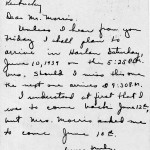 Kentucky
Dear Mr. Morris:
Unless I hear from you
Friday I shall plan to
arrive in Harlan Saturday,
June 10, 1939 on the 5:25 P.M.
bus. Should I miss this one
the next one arrives at 9:30 P.M.
I understood at first that I
was to come back June 12th,
but Mrs. Morris asked me
to come June 10th.